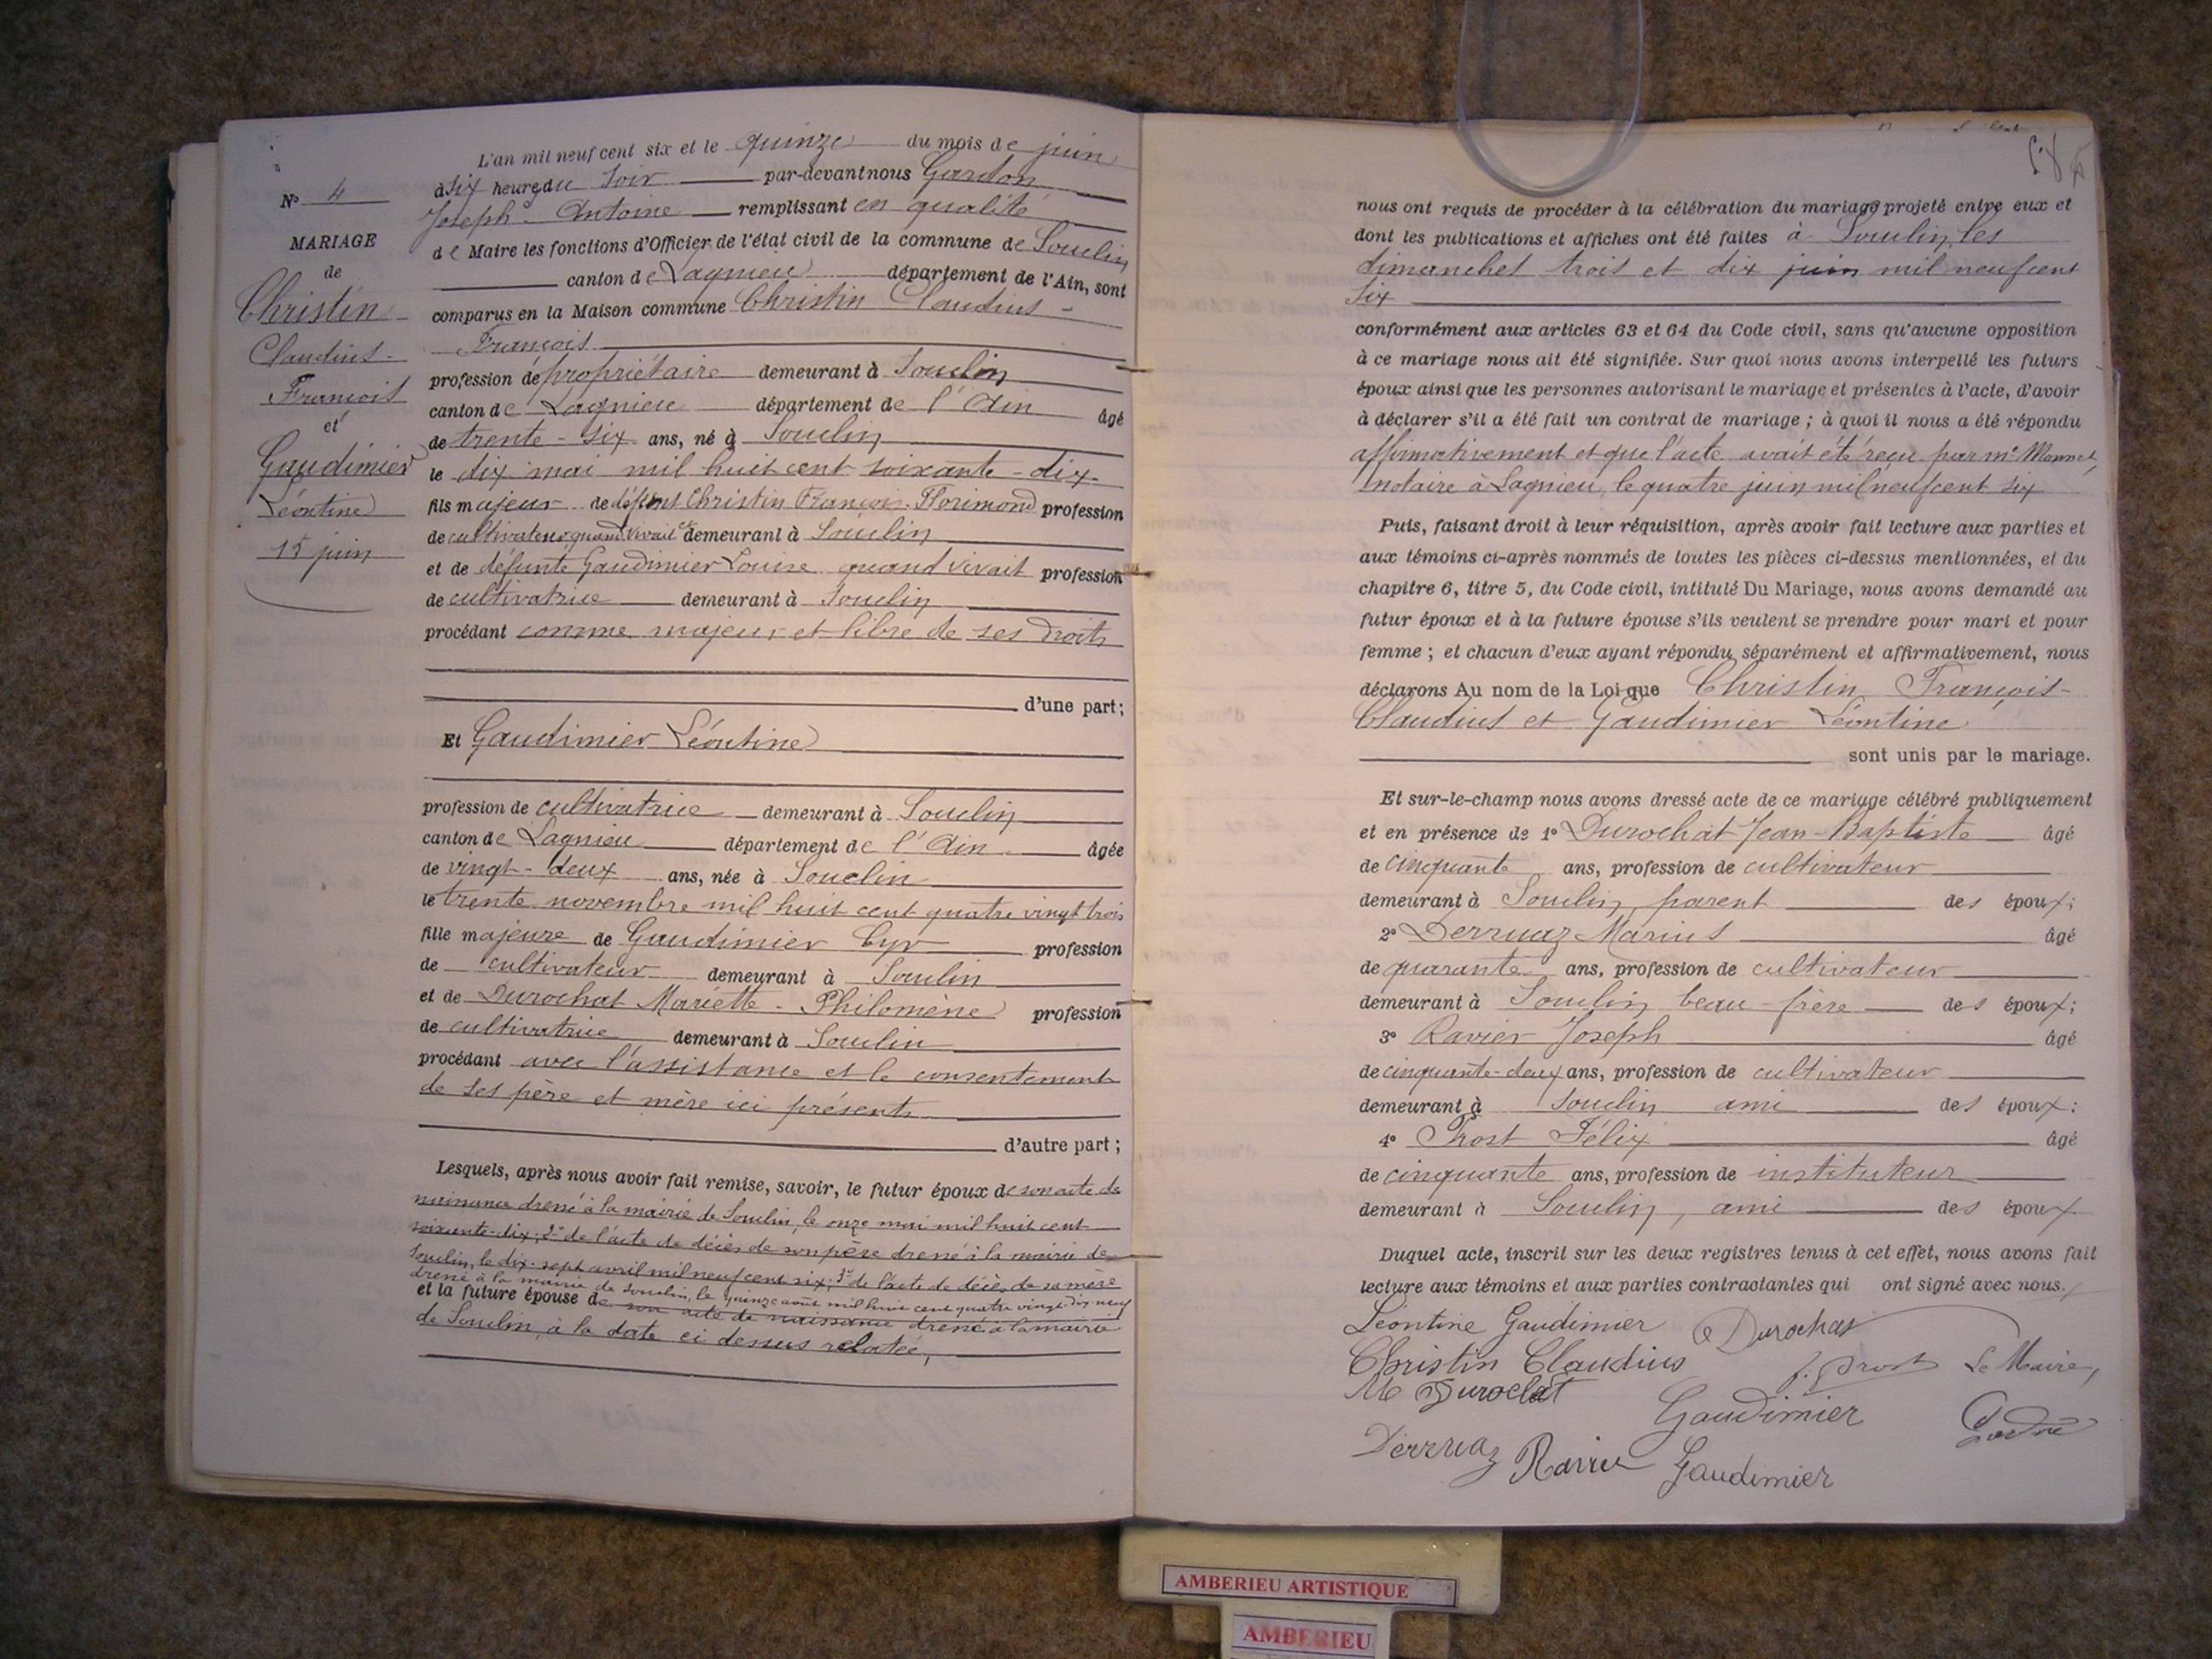 N° 4
MARIAGE
de
Christin
Claudius-
François
et
Gaudimier
Léontine
15 juin
L'an mil neuf cent six et le quinze du mois de juin
à six heures du soir par-devant nous Gardon
Joseph-Antoine remplissant en qualité
de Maire les fonctions d'Officier de l'état civil de la commune de Souclin
canton de Lagnieu département de l'Ain, sont
comparus en la Maison commune Christin Claudius-
François
profession de propriétaire demeurant à Souclin
canton de Lagnieu département de l'Ain âgé
de trente-six ans, né à Souclin
le dix mai mil huit cent soixante-dix
fils majeur de défunt Christin François-Florimond profession
de cultivateur quand vivait et demeurant à Souclin
et de défunte Gaudimier Louise quand vivait profession
de cultivatrice demeurant à Souclin
procédant comme majeur et libre de ses droits
d'une part;
Et Gaudimier Léontine
profession de cultivatrice demeurant à Souclin
canton de Lagnieu département de l'Ain âgée
de vingt-deux ans, née à Souclin
le trente novembre mil huit cent quatre vingt trois
fille majeure de Gaudimier Cyr profession
de cultivateur demeurant à Souclin
et de Durochat Mariette-Philomène profession
de cultivatrice demeurant à Souclin
procédant avec l'assistance et le consentement
de ses père et mère ici présents
d'autre part;
Lesquels, après nous avoir fait remise, savoir, le futur époux de son acte de
naissance dressé à la mairie de Souclin, le onze mai mil huit cent
soixante-dix; 2° de l'acte de décès de son père dressé à la mairie de
Souclin, le dix-sept avril mil neuf cent six; 3° de l'acte de décès de sa mère
dressé à la mairie de Souclin, le quinze août mil huit cent quatre vingt-dix-neuf
et la future épouse de son acte de naissance dressé à la mairie
de Souclin, à la date ci dessus relatée,
nous ont requis de procéder à la célébration du mariage projeté entre eux et
dont les publications et affiches ont été faites à Souclin, les
dimanches trois et dix juin mil neuf cent
six
conformément aux articles 63 et 64 du Code civil, sans qu'aucune opposition
à ce mariage nous ait été signifiée. Sur quoi nous avons interpellé les futurs
époux ainsi que les personnes autorisant le mariage et présentes à l'acte, d'avoir
à déclarer s'il a été fait un contrat de mariage; à quoi il nous a été répondu
affirmativement et que l'acte avait été reçu par Me Monnet,
notaire à Lagnieu, le quatre juin mil neuf cent six
Puis, faisant droit à leur réquisition, après avoir fait lecture aux parties et
aux témoins ci-après nommés de toutes les pièces ci-dessus mentionnées, et du
chapitre 6, titre 5, du Code civil, intitulé Du Mariage, nous avons demandé au
futur époux et à la future épouse s'ils veulent se prendre pour mari et pour
femme; et chacun d'eux ayant répondu séparément et affirmativement, nous
déclarons Au nom de la Loi que Christin François-
Claudius et Gaudimier Léontine
sont unis par le mariage.
Et sur-le-champ nous avons dressé acte de ce mariage célébré publiquement
et en présence de 1° Durochat Jean-Baptiste âgé
de cinquante ans, profession de cultivateur
demeurant à Souclin, parent des époux;
2° Derruaz Marius âgé
de quarante ans, profession de cultivateur
demeurant à Souclin beau-frère des époux;
3° Ravier Joseph âgé
de cinquante-deux ans, profession de cultivateur
demeurant à Souclin ami des époux:
4° Prost Félix âgé
de cinquante ans, profession de instituteur
demeurant à Souclin, ami des époux.
Duquel acte, inscrit sur les deux registres tenus à cet effet, nous avons fait
lecture aux témoins et aux parties contractantes qui ont signé avec nous.
Léontine Gaudimier Durochat
Christin Claudius f. Prost Le Maire,
M Durochat
Gaudimier
Derruaz Ravier Gaudimier
AMBERIEU ARTISTIQUE
AMBERIEU